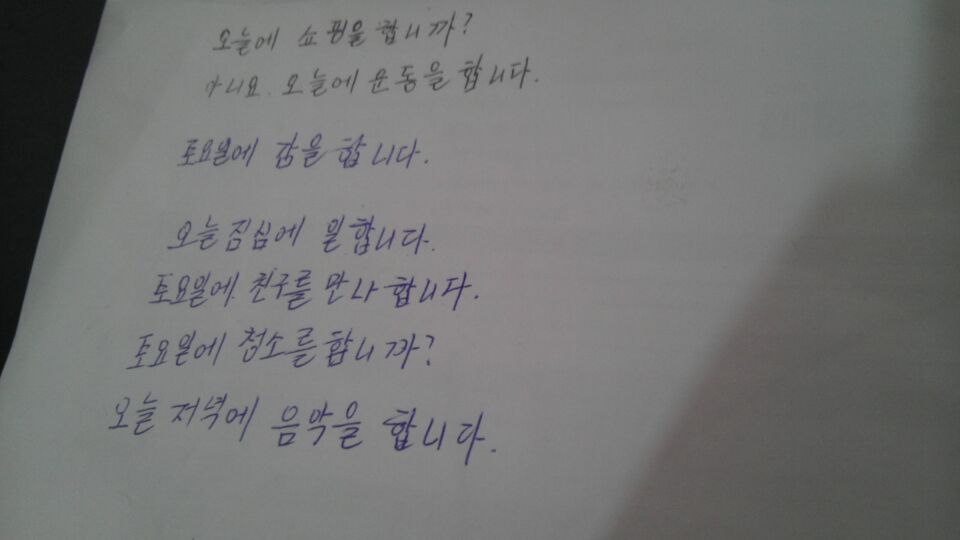 오늘에 쇼핑을 합니까?
아니요. 오늘에 운동을 합니다.
토요일에 잠을 합니다.
오늘 짐심에 일합니다.
토요일에 친구를 만나 합니다.
토요일에 청소를 합니까?
오늘 저녁에 음악을 합니다.